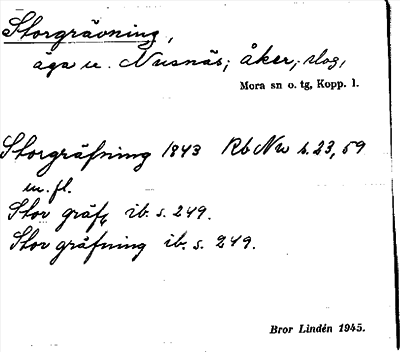 Storgrävning,
äga u. Nusnäs; åker, slog,
Mora sn o. tg, Kopp. l.
Storgräfning 1843 Rb Nu s. 23, 59
m. fl.
Stor gräf, ib. s. 249.
Stor gräfning ib. s. 249.
Bror Lindén 1945.